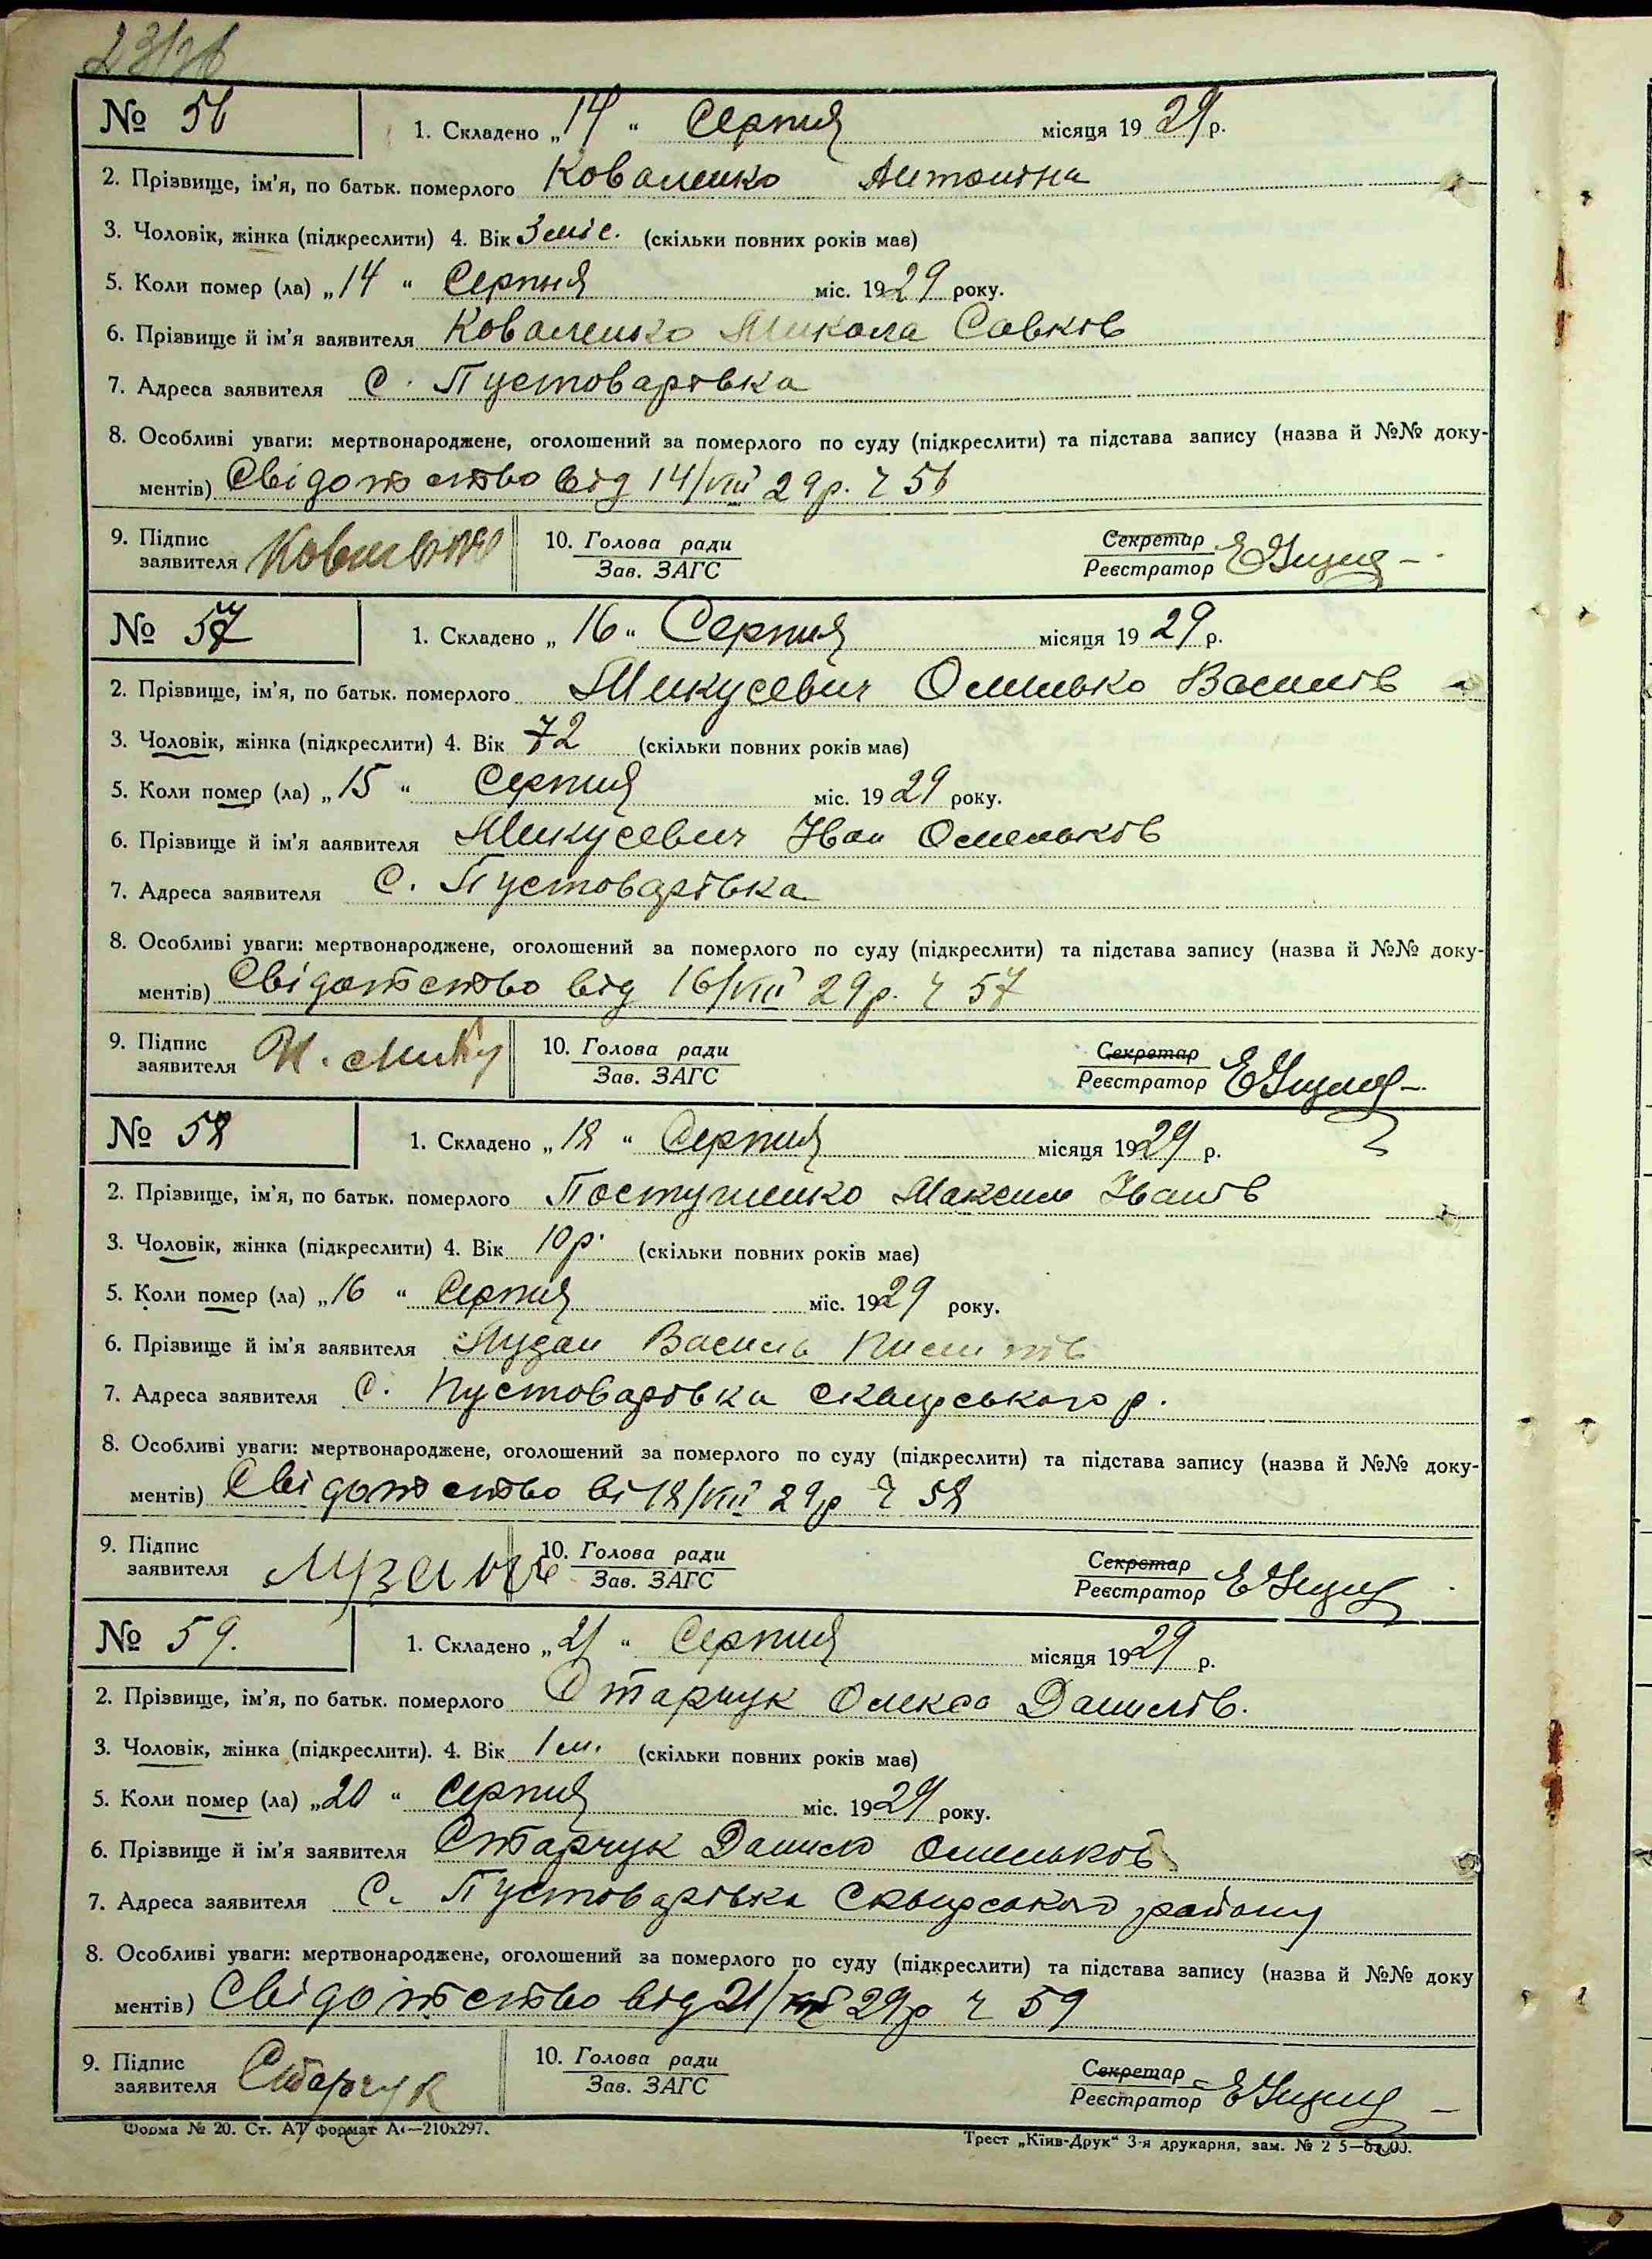 № 56 1. Складено „14“ Серпня місяця 1929 р.
2. Прізвище, ім'я, по батьк. померлого Коваленко Антоніна
3. Чоловік, жінка (підкреслити) 4. Вік 3 міс. (скільки повних років має)
5. Коли помер (ла) „14“ Серпня міс. 1929 року.
6. Прізвище й ім'я заявителя Коваленко Микола Савків
7. Адреса заявителя С. Пустоварівка
8. Особливі уваги: мертвонароджене, оголошений за померлого по суду (підкреслити) та підстава запису (назва й №№ доку-
ментів) Свідотство від 14/VIII 29р. Ч 56
9. Підпис 10. Голова ради Секретар
заявителя Зав. ЗАГС Реєстратор
№ 57 1. Складено „16“ Серпня місяця 1929 р.
2. Прізвище, ім'я, по батьк. померлого Микусевич Омелько Василів
3. Чоловік, жінка (підкреслити) 4. Вік 72 (скільки повних років має)
5. Коли помер (ла) „15“ Серпня міс. 1929 року.
6. Прізвище й ім'я заявителя Микусевич Іван Омельків
7. Адреса заявителя С. Пустоварівка
8. Особливі уваги: мертвонароджене, оголошений за померлого по суду (підкреслити) та підстава запису (назва й №№ доку-
ментів) Свідотство від 16/VIII 29р. Ч 57
9. Підпис 10. Голова ради Секретар
заявителя Зав. ЗАГС Реєстратор
№ 58 1. Складено „18“ Серпня місяця 1929 р.
2. Прізвище, ім'я, по батьк. померлого Максим Іванів
3. Чоловік, жінка (підкреслити) 4. Вік 10 р. (скільки повних років має)
5. Коли помер (ла) „16“ Серпня міс. 1929 року.
6. Прізвище й ім'я заявителя Василь
7. Адреса заявителя С. Пустоварівка Сквирського р.
8. Особливі уваги: мертвонароджене, оголошений за померлого по суду (підкреслити) та підстава запису (назва й №№ доку-
ментів) Свідотство ві 18/VIII 29р Ч 58
9. Підпис 10. Голова ради Секретар
заявителя Зав. ЗАГС Реєстратор
№ 59. 1. Складено „21“ Серпня місяця 1929 р.
2. Прізвище, ім'я, по батьк. померлого Старчук Олекса Данилів.
3. Чоловік, жінка (підкреслити). 4. Вік 1 м. (скільки повних років має)
5. Коли помер (ла) „20“ Серпня міс. 1929 року.
6. Прізвище й ім'я заявителя Старчук Данило Омельків
7. Адреса заявителя С. Пустоварівка Сквирського району
8. Особливі уваги: мертвонароджене, оголошений за померлого по суду (підкреслити) та підстава запису (назва й №№ доку
ментів) Свідотство від 21/VIII 29р Ч 59
9. Підпис Старчук 10. Голова ради Секретар
заявителя Зав. ЗАГС Реєстратор
Форма № 20. Ст. формат А4—210x297.
Трест „Київ-Друк“ 3-я друкарня, зам. №